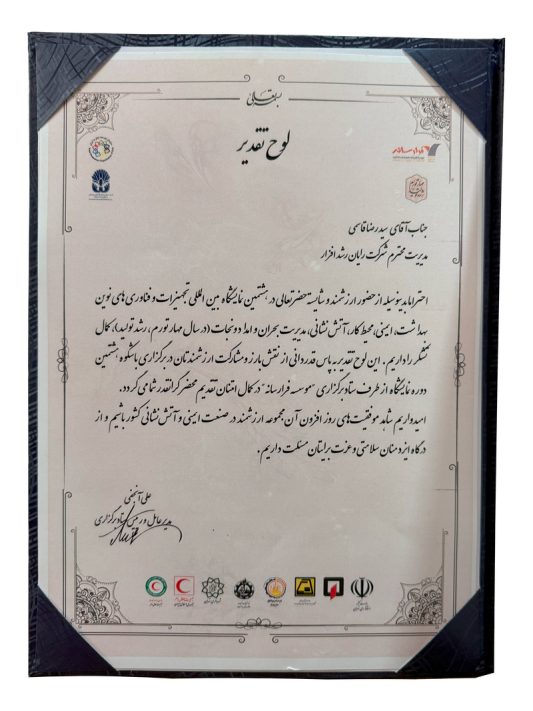 بسمه تعالی
لوح تقدیر
جناب آقای سید رضا قاسمی
مدیریت محترم شرکت رایان رشد افزار
احتراما بدینوسیله از حضور ارزشمند و شایسته حضرتعالی در هشتمین نمایشگاه بین المللی تجهیزات و فناوری های نوین
بهداشت، ایمنی، محیط کار، آتش نشانی، مدیریت بحران و امداد و نجات (در سال مهار تورم، رشد تولید)، کمال
تشکر را داریم. این لوح تقدیر به پاس قدردانی از نقش بارز و مشارکت ارزشمندتان در برگزاری باشکوه هشتمین
دوره نمایشگاه از طرف ستاد برگزاری "موسسه فرارسانه" در کمال امتنان تقدیم محضر گرانقدرتان می گردد.
امیدواریم شاهد موفقیت های روز افزون آن مجموعه ارزشمند در صنعت ایمنی و آتش نشانی کشور باشیم و از
درگاه ایزد منان سلامتی و عزت برایتان مسئلت داریم.
مدیر عامل و رئیس ستاد برگزاری